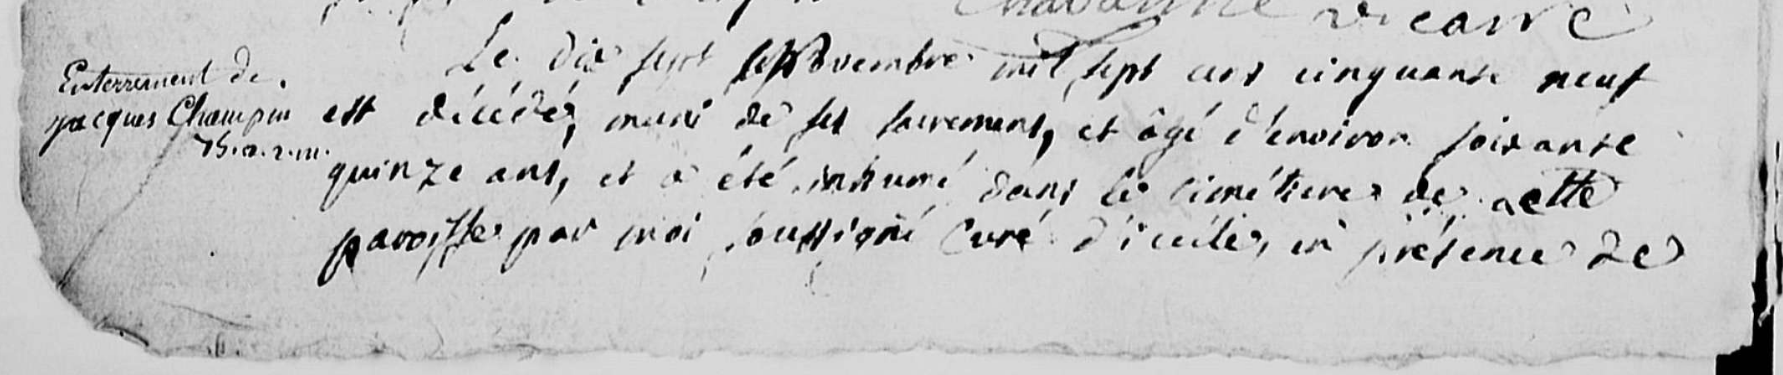 Chavanne Vicaire
Enterrement de
jacques Champin
75. a. r. m.
Le dix sept Novembre mil sept cens cinquante neuf
est décédé, muni de ses sacremens, et âgé d'environ soixante
quinze ans, et a été inhumé dans le cimétiere de cette
paroisse par moi soussigné Curé d'icelle, en présence de